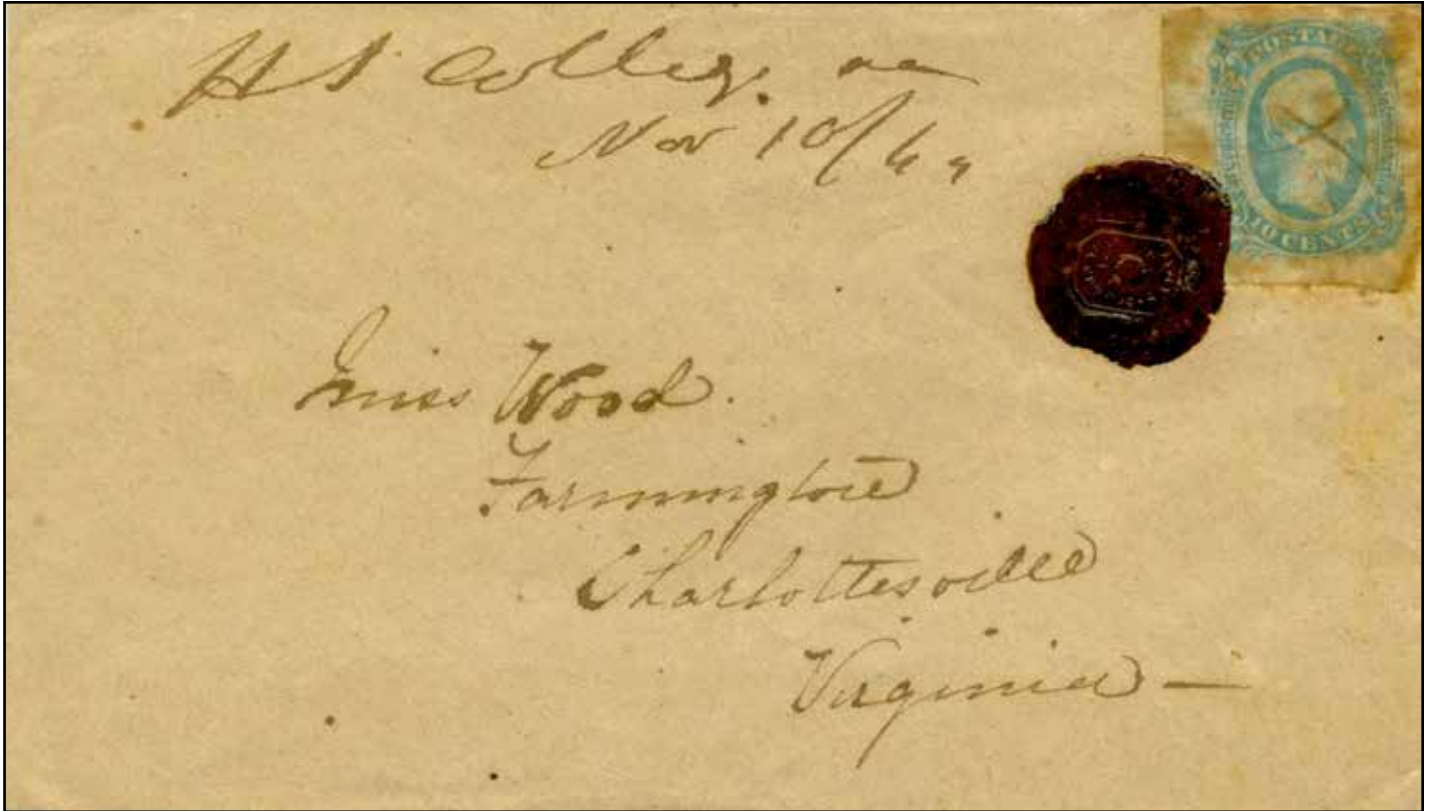 H S College. Va
Nov 10/64
POSTAGE
10 CENTS
Miss Wood.
Farmington
Charlottesville
Virginia —